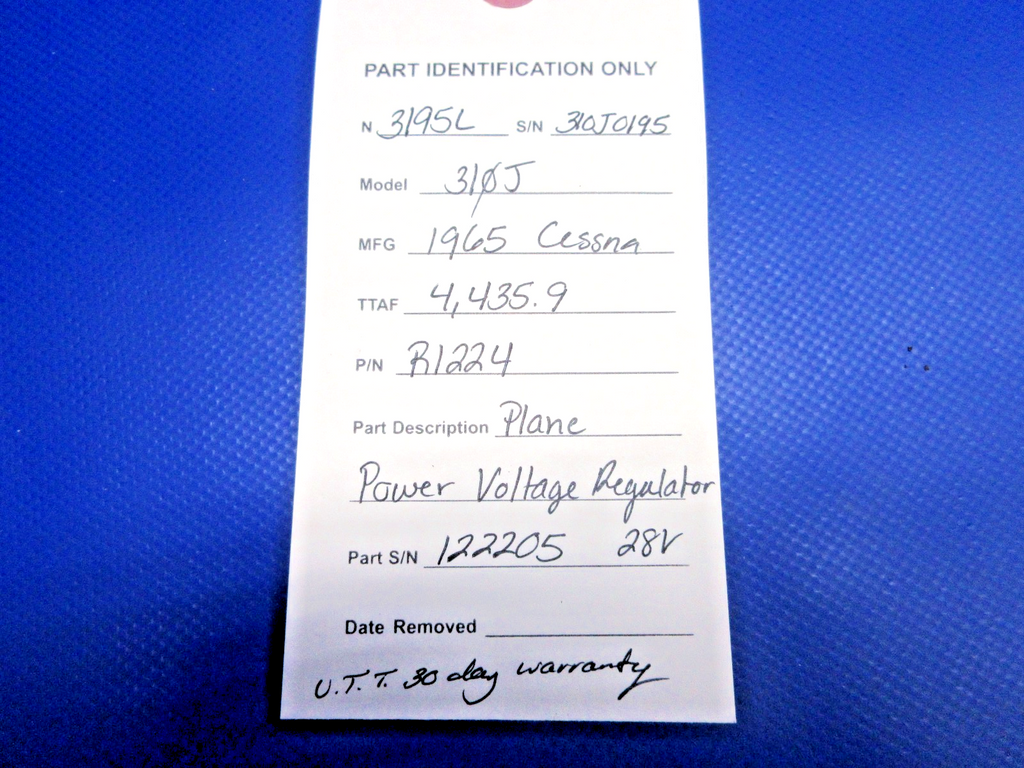 PART IDENTIFICATION ONLY
N 3195L S/N 310J0195
Model 310J
MFG 1965 Cessna
TTAF 4,435.9
P/N R1224
Part Description Plane
Power Voltage Regulator
Part S/N 122205 28V
Date Removed
U.T.T. 30 day warranty